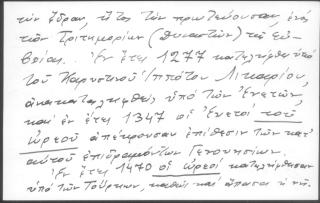 τὴν ἕδραν, ἤτοι τὴν πρωτεύουσαν, ἑνός
τῶν Τριτημορίων (δυναστῶν) τῆς Εὐ-
βοίας. Ἐν ἔτει 1277 κατελήφθη ὑπό
τοῦ Καρυστινοῦ ἱππότου Λικαρίου,
ἀνακαταληφθείς ὑπό τῶν Ἐνετῶν,
καί ἐν ἔτει 1347 οἱ Ἐνετοί τοῦ
Ὠρεοῦ ἀπέκρουσαν ἐπίθεσιν τῶν κατ'
αὐτοῦ ἐπιδραμόντων Γενουησίων.
Ἐν ἔτει 1470 οἱ Ὠρεοί κατελήφθησαν
ὑπό τῶν Τούρκων, καθώς καί ἅπασα ἡ νῆ-